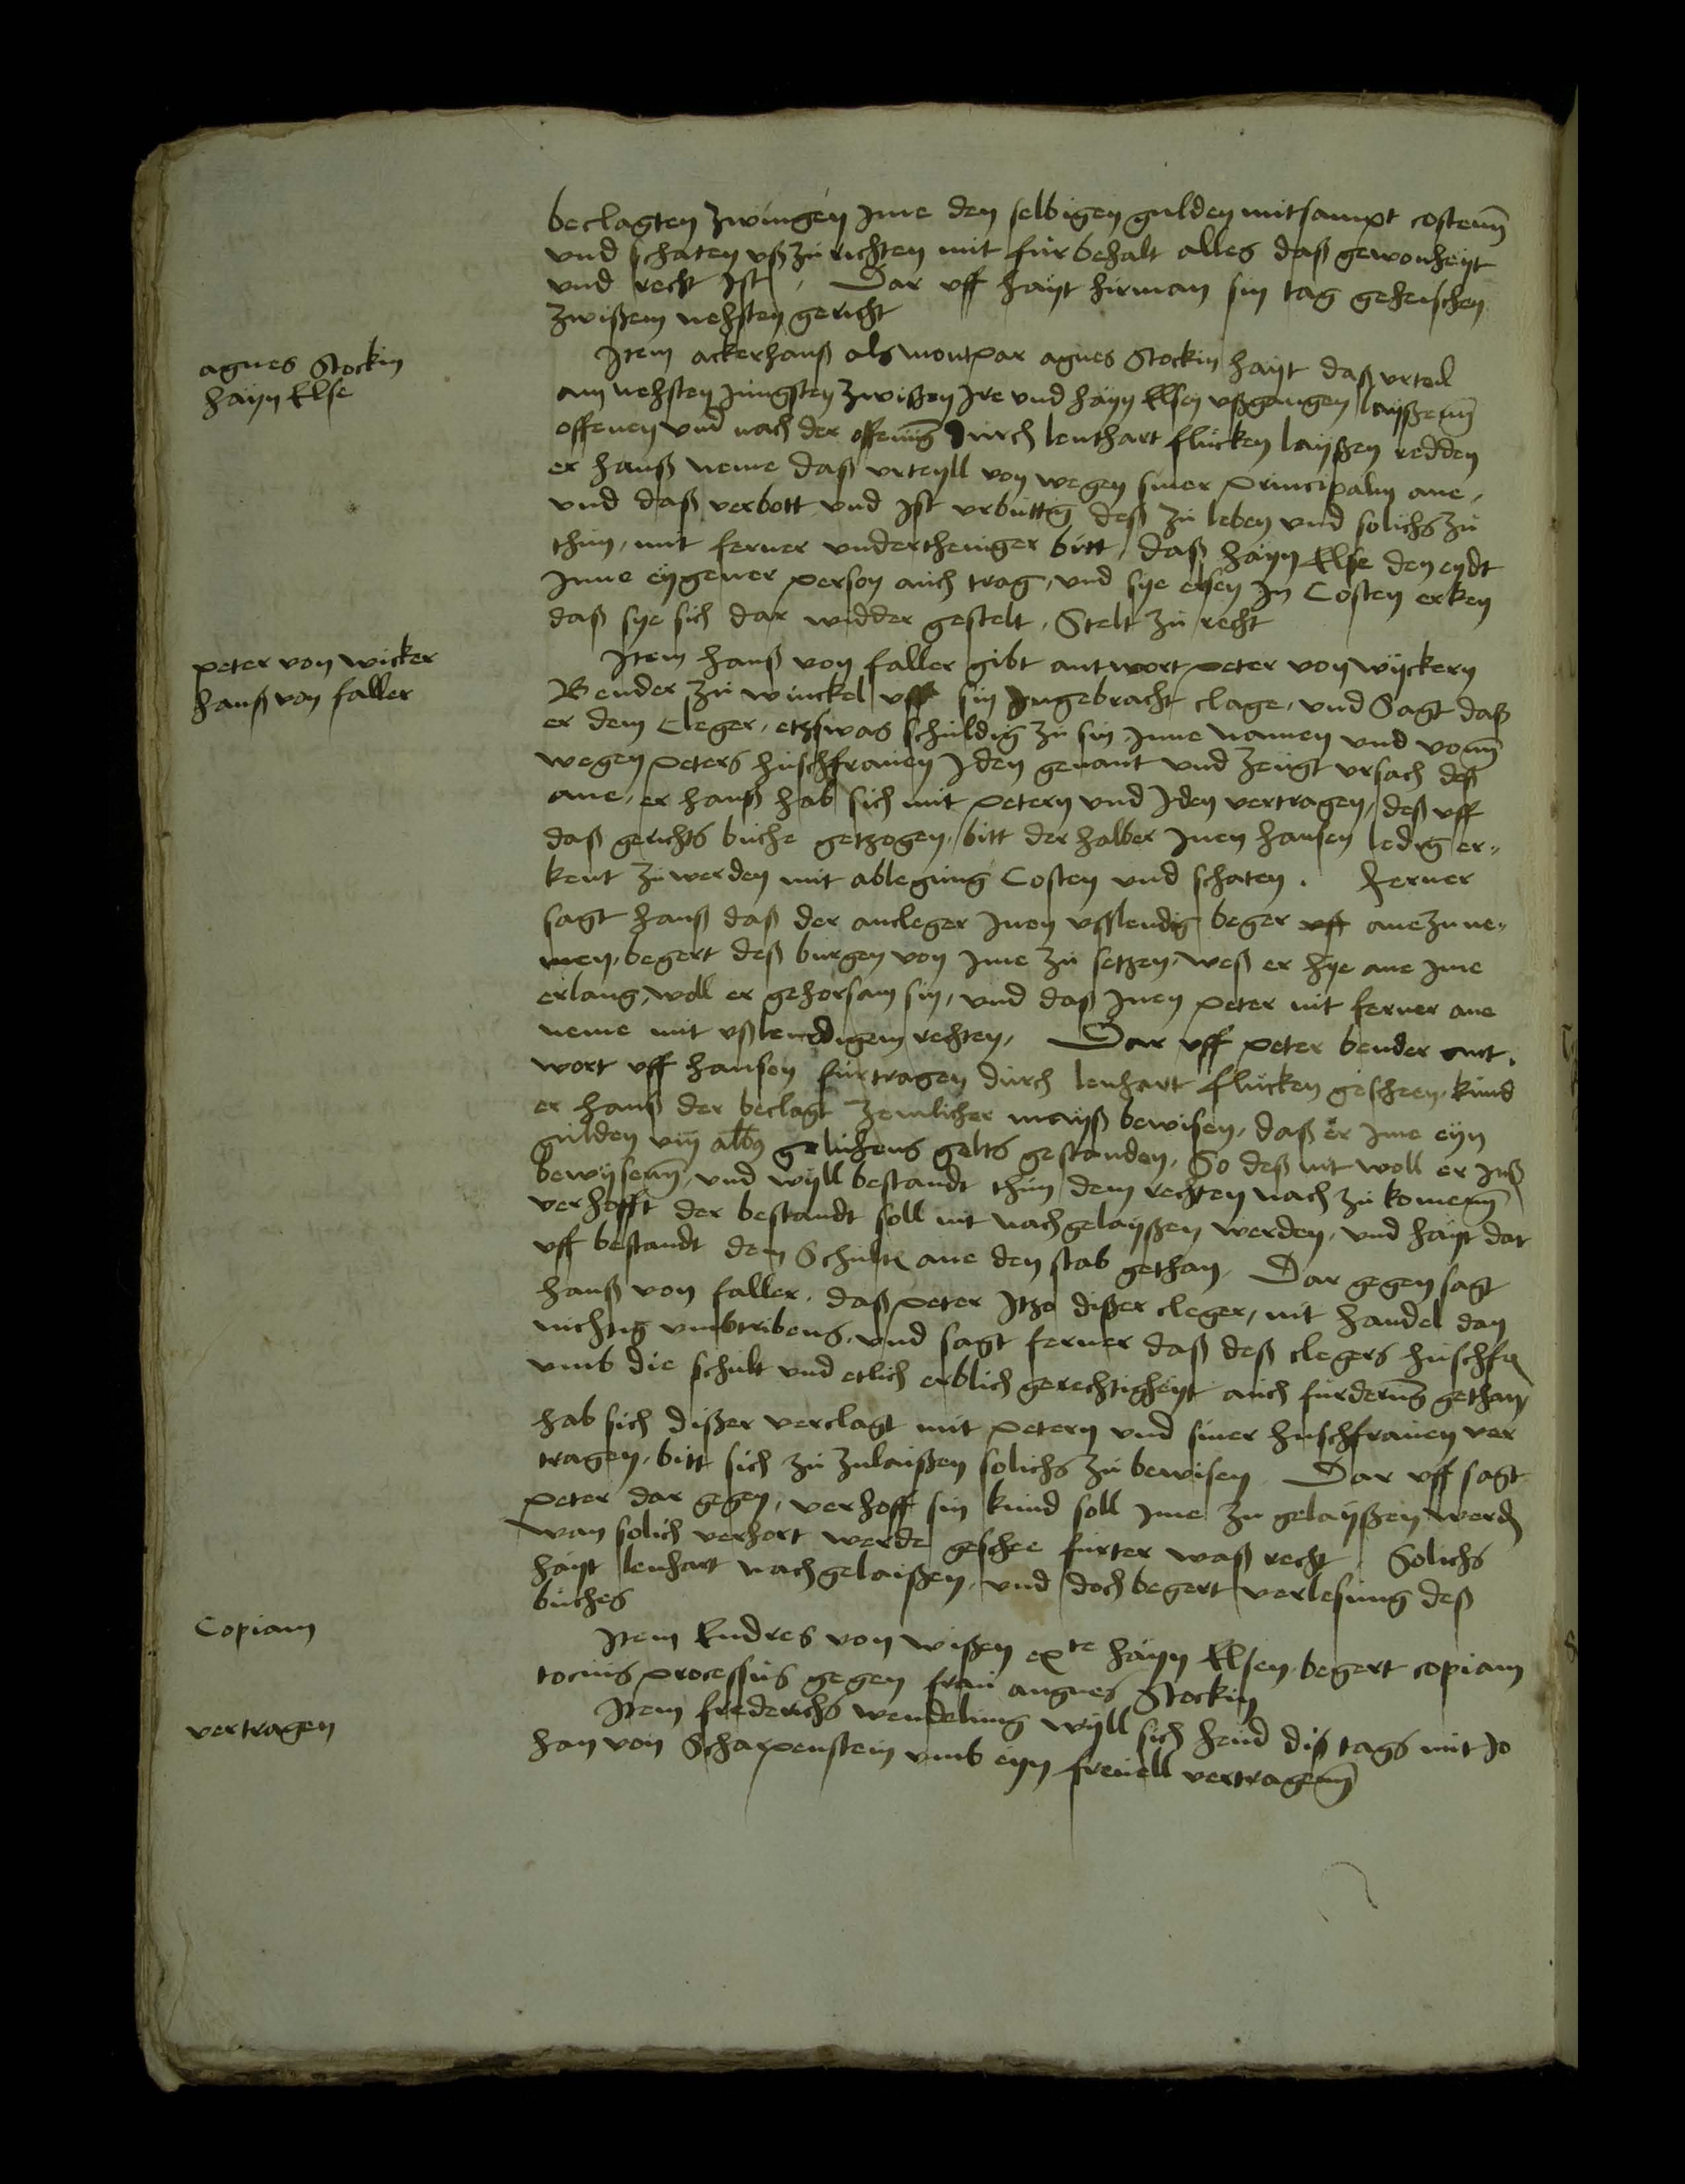 beclagten zwingen Ime den selbigen gulden mitsampt costenn
und schaten ußzurichten mit furbehalt alles daß gewonheyt
und recht ist, Dar uff hayt hirman sin tag geheischen
zwißem nehsten gericht
agnes Stockin
hayn Else
Item ackerhanß als montpar agnes Stockin hayt daß urteil
am nehsten jungsten zwißen Ire und hayn Elsen ußgangen layßenn
offenen und nach der offenung durch lenthart flucken layßen redden
er hanß neme daß urteyll von wegen siner principalin ane,
und daß verbott und ist urbuttig deß zu leben und solichs zu
thun, mit ferner undertheniger bitt, daß hayn Else den eydt
Inne eygener person auch trag, und sye elsen In Costen erken
daß sye sich dar widder gestelt, Stelt zu recht
peter von wicker
hanß von faller
Item hanß von faller gibt antwort peter von wyckern
Bender zu winckel uff sin Ingebracht clage, und Sagt daß
er dem Cleger, etzswas schuldig zu sin, Inne namen und vonn
wegen peters huschfrauen Iden genant und zeugt ursach deß
ane, er hanß hab sich mit petern und Iden vertragen, deß uff
daß gerichts buche getzogen, bitt der halber Inen hansen ledig er,,
kent zu werden mit ablegung Costen und schaten. Ferner
sagt hanß daß der ancleger Inen ußlendig beger uff anezune,,
men, begert deß burgen von Ime zu setzen, weß er hye ane Ime
erlang, woll er gehorsam sin, und daß Inen peter nit ferner ane
neme mit ußlendigem rechten, Dar uff peter bender ant,
wort uff hansen furtragen durch lenhart flucken gescheen, kund
er hanß der beclagt zemlicher mayß bewisen, daß er Ime eyn
gulden viij albus geluhens gelts gestanden, So deß nit woll er Inß
bewysenn, und wyll bestandt thun dem rechten nach zu komenn
verhofft der bestandt soll nit nachgelayßen werden, und hayt dar
uff bestandt dem Schulteß ane den stab gethan, Dar gegen sagt
hanß von faller, daß peter Itzo dißer cleger, nit handel dan
nichtig umbtribens, und sagt ferner daß deß clegers huschfr
umb die schult und etlich erblich gerechtigheyt auch furderung gethan
hab sich dißer verclagt mit petern und siner huschfrauen ver
tragen, bitt sich zu zulaißen solichs zu bewisen Dar uff sagt
peter dar gegen, verhoff sin kund soll Ime zu gelayßen werden
wan solich verhort werde geschee furter waß recht, Solichs
hayt lenhart nachgelaißen, und doch begert verlesung deß
buches
Copiam
Item Endres von wißen ex te hayn Elsen begert copiam
tocius processus gegen frau angnes Stockin
vertragen
Item frederichs wendeling wyll sich heud dis tags mit Jo
han von Scharpenstein umb eyn freuell vertragenn